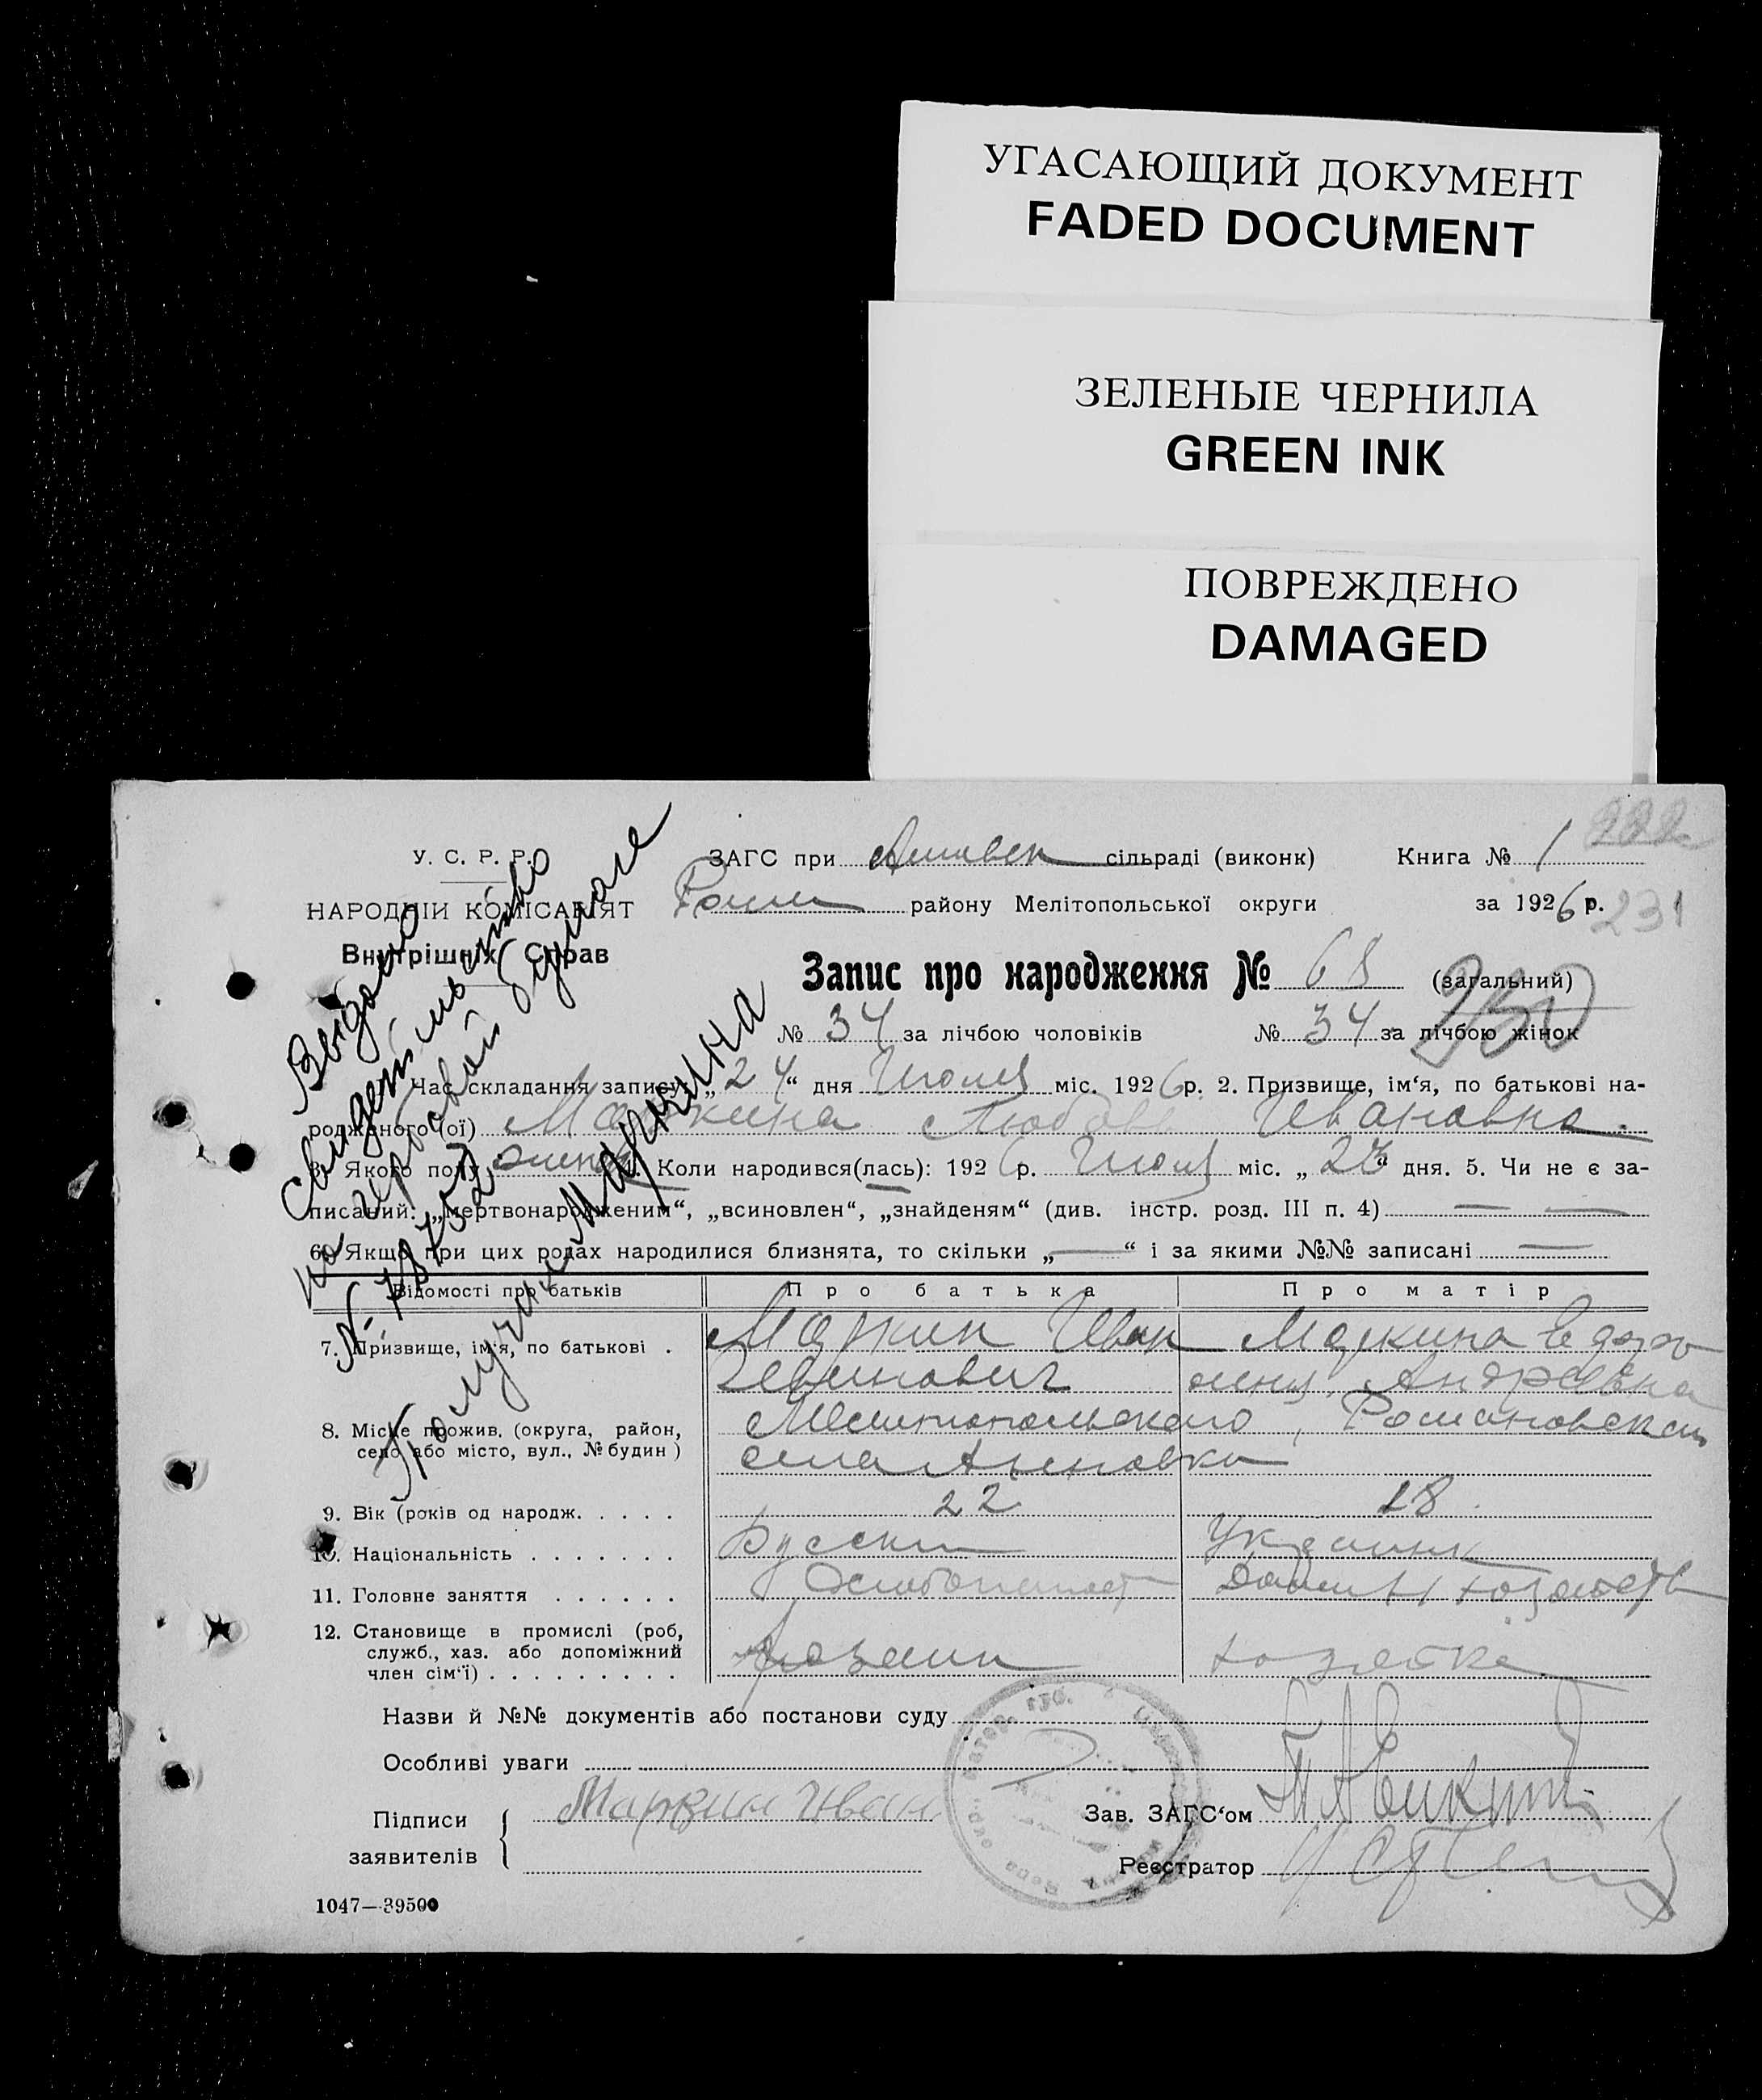 УГАСАЮЩИЙ ДОКУМЕНТ
FADED DOCUMENT
ЗЕЛЕНЫЕ ЧЕРНИЛА
GREEN INK
ПОВРЕЖДЕНО
DAMAGED
222
У. С. Р. Р.
ЗАГС при сільраді (виконк) Книга № 1
НАРОДНІЙ КОМІСАРІЯТ
району Мелітопольської округи за 1926 р. 231
Внутрішніх Справ
Запис про народження № 68 (загальний)
230
№ 34 за лічбою чоловіків № 34 за лічбою жінок
Час складання запису „24“ дня Июля міс. 1926 р. 2. Призвище, ім‘я, по батькові на-
родженого (ої) Маркина Любовь Ивановна.
3. Якого полу женск 4. Коли народився(лась): 1926 р. Июля міс. „ “ дня. 5. Чи не є за-
писаний: „мертвонародженим“, „всиновлен“, „знайденям“ (див. інстр. розд. III п. 4) — —
6. Якщо при цих родах народилися близнята, то скільки „—“ і за якими №№ записані —
Выдано
Свидетельство
на гербовой бумаге
№ 
Получил Маркина
Відомості про батьків Про батька Про матір
7. Призвище, ім‘я, по батькові . Маркин Иван Маркина Евдо
Андреевна
8. Місце прожив. (округа, район, Мелитопольского, Романовского
село або місто, вул., № будин ) села Анновка
9. Вік (років од народж. . . . . 22 18
10. Національність . . . . . . . Русский Украинк
11. Головне заняття . . . . . . Хлебопашест Домашн хозяйств
12. Становище в промислі (роб,
служб., хаз. або допоміжний хозяин хозяйка
член сім‘ї) . . . . . . . . .
Назви й №№ документів або постанови суду
Особливі уваги
Підписи Маркин Иван Зав. ЗАГС‘ом
заявителів Реєстратор
1047—39500